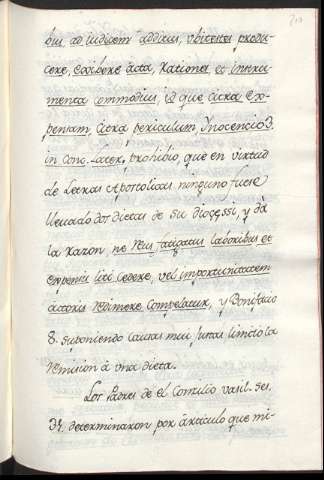 bus ad iudicem additus, ubi testes produ-
cere, exibere acta, rationes et instru-
menta commodius, id que citra ex-
pensam, citra periculum, Inocencio 3.
in Conc. Later, prohivio, que en virtud
de Letras Apostolicas ninguno fuese
llevado dos dietas de su dioçessi, y dà
la razon, ne Reus fatigatus laboribus et
expensis liti cedere, vel importunitatem
actoris redimere compelatur, y Bonifacio
8. suponiendo causas mui justas limito la
remision à una dieta.
Los Padres de el Concilio vasil. ses.
31. determinaron por àrticulo que mi-